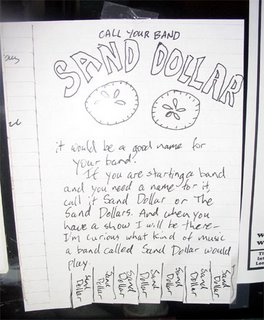 CALL YOUR BAND
SAND DOLLAR
it would be a good name for
your band.
If you are starting a band
and you need a name for it,
call it Sand Dollar or The
Sand Dollars. And when you
have a show I will be there—
I'm curious what kind of music
a band called Sand Dollar would
play.
Sand Dollar
Sand Dollar
Sand Dollar
Sand Dollar
Sand Dollar
Sand Dollar
Sand Dollar